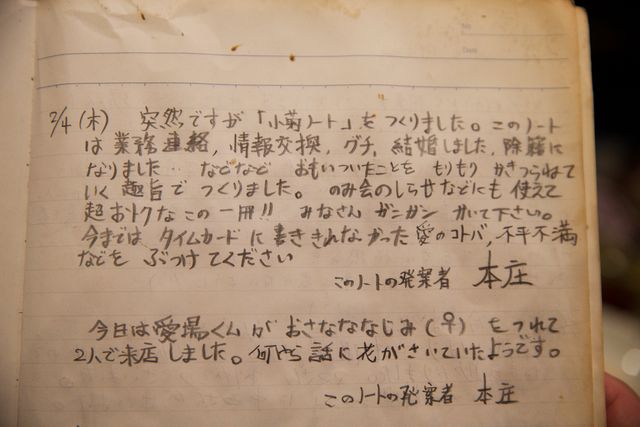 2/4(木) 突然ですが「小菊ノート」をつくりました。このノート
は業務連絡，情報交換，グチ，結婚しました，除籍に
なりました… などなど おもいついたことを もりもり かきつらねて
いく趣旨で つくりました。 のみ会のしらせなどにも使えて
超おトクなこの一冊!! みなさん ガンガン かいて下さい。
今まではタイムカードに書ききれなかった愛のコトバ，不平不満
などを ぶつけてください
このノートの発案者 本庄
今日は愛場くんが おさなななじみ(♀)をつれて
2人で来店しました。何やら話に花がさいていたようです。
このノートの発案者 本庄